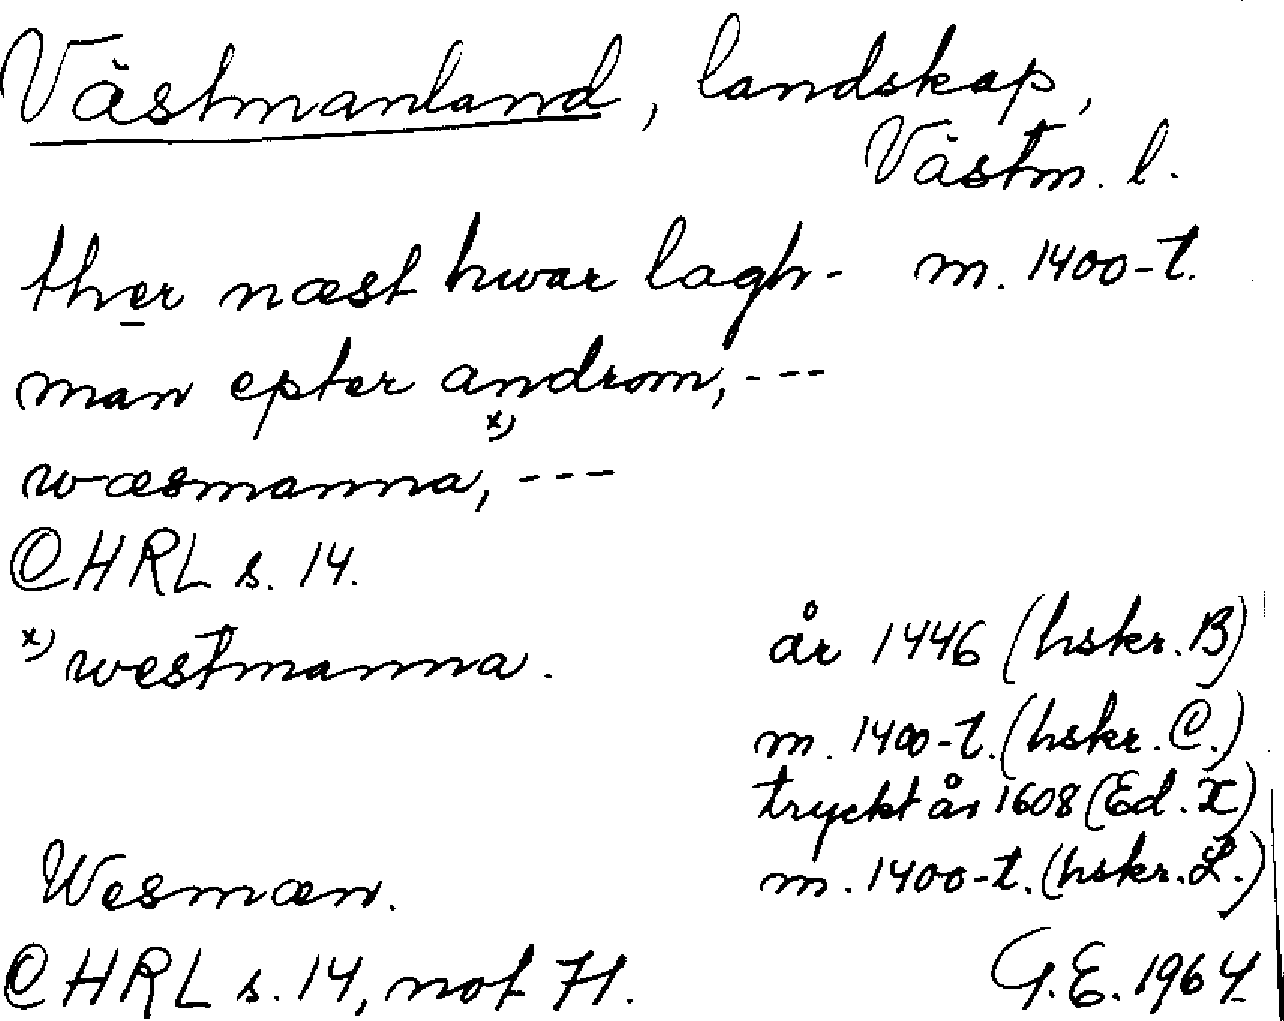 Västmanland, landskap,
Västm. l.
ther næst hwar lagh- m. 1400-t.
man epter androm, ---
wæsmanna, x) ---
CHRL s. 14.
x) westmanna. år 1446 (hskr. B)
m. 1400-t. (hskr. C.)
tryckt år 1608 (Ed. X)
Wesmæn. m. 1400-t. (hskr. L.)
CHRL s. 14, not 71. G.E. 1964